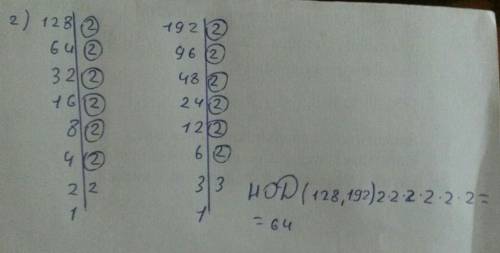 г) 128 | 2 192 | 2
64 | 2 96 | 2
32 | 2 48 | 2
16 | 2 24 | 2
8 | 2 12 | 2
4 | 2 6 | 2
2 | 2 3 | 3
1 1
НОD (128,192) 2·2·2·2·2·2 =
= 64